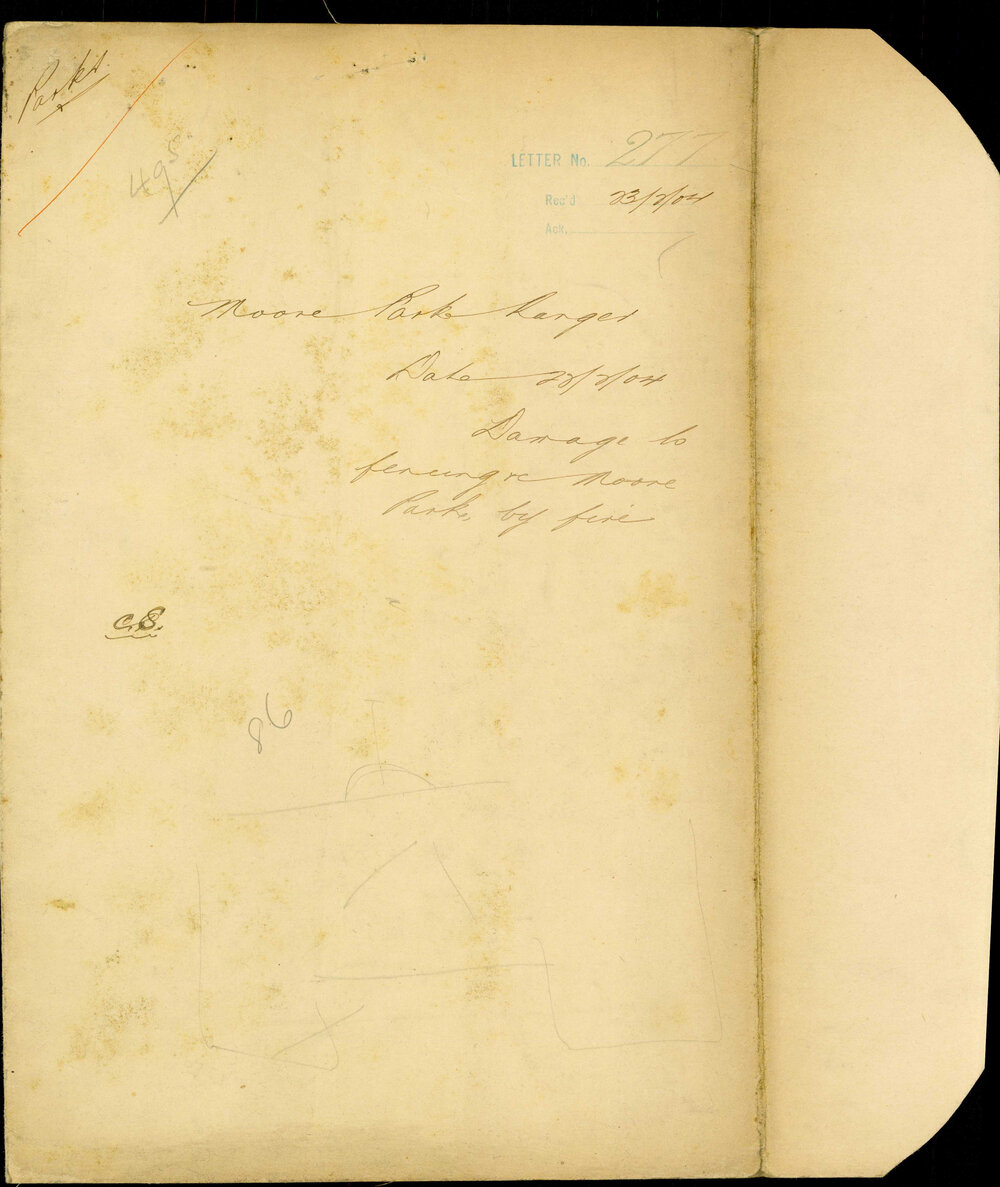 Parks.
49⁵
LETTER No. 277
Rec'd 23/2/04
Ack.
Moore Park Ranger
Date 22/2/04
Damage to
fencing re Moore
Park, by fire
C.S.
86